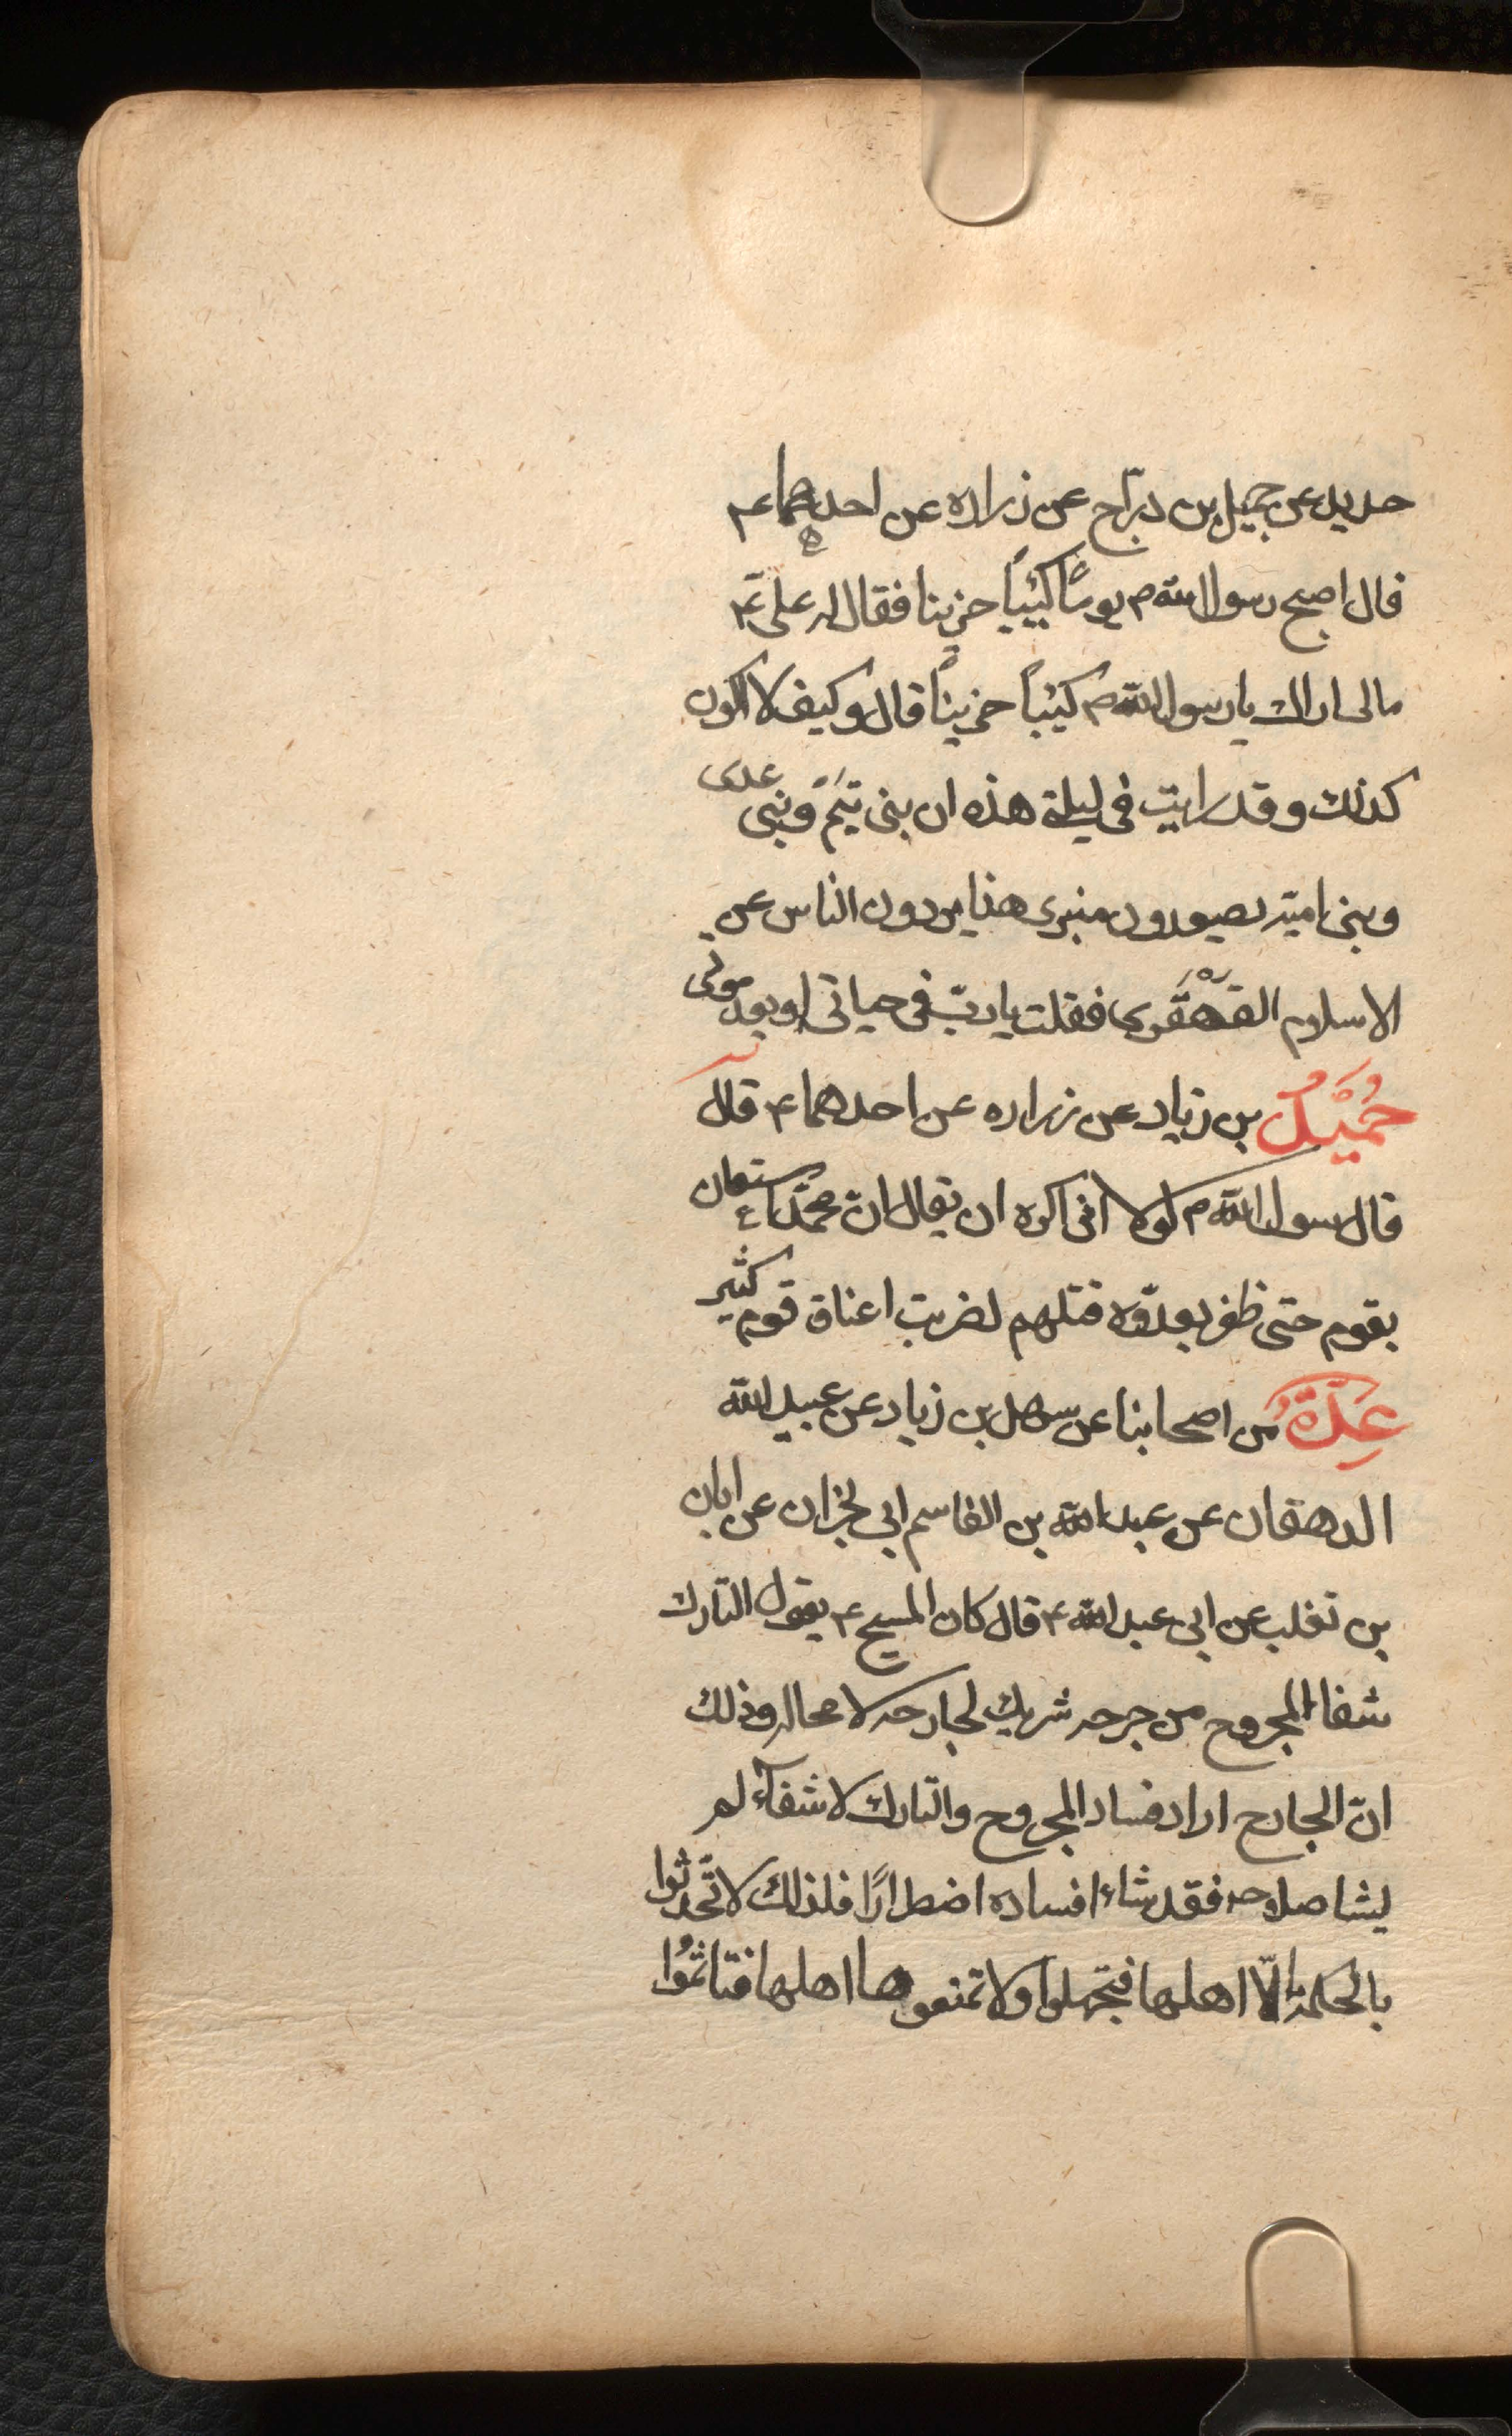 حديد عن جميل بن درّاج عن زراره عن احدهما ع م
قال اصبح رسول الله ص يومًا كئيبًا حزينا فقال له علي ع
مالى اراك يا رسول الله ص كئيبًا حزينًا قال وكيف لا اكون
كذلك وقد رايت فى ليلة هذه ان بنى تيَم وبنى عدى
وبنى اميّه يصعدون منبرى هذا يردون الناس عن
الاسلام القَهْقَرى فقلت يا ربّ فى حياتى او بعد موتى
حُمَيْلُ بن زياد عن زراره عن احدهما ع قال
قال رسول الله ص لولا انى اكره ان يقال انّ محمّدًا ع استعان
بقوم حتى ظفر بعدوّه قتلهم لضربت اعناق قوم كثير
عِدّةٌ من اصحابنا عن سهل بن زياد عن عبيد الله
الدهقان عن عبد الله بن القاسم ابى نجران عن ابان
بن تغلب عن ابى عبد الله ع قال كان المسيح ع يقول التارك
شفاء المجروح من جرحه شريك لجارحه لا محاله وذلك
انّ الجارح اراد فساد المجروح والتارك لاشفائه لم
يشا صلاحه فقد شاء افساده اضطرارًا فلذلك لا تحّدثوا
بالحكمة الّا اهلها فتجهلوا ولا تمنعوها اهلها فتاثمُوا